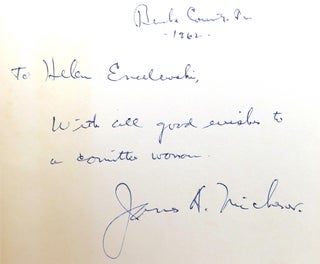 Bucks County, Pa
-1962-
To Helen
With all good wishes to
a committee woman.
James A. Michener.